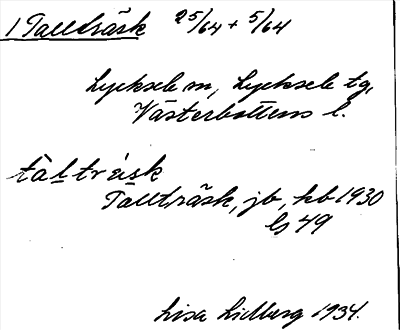 1 Tallträsk 25/64 + 5/64
Lycksele m, Lycksele tg,
Västerbottens l.
tàltrásk
Tallträsk, jb, kb 1930
bs 49
Lisa Lidberg 1934.